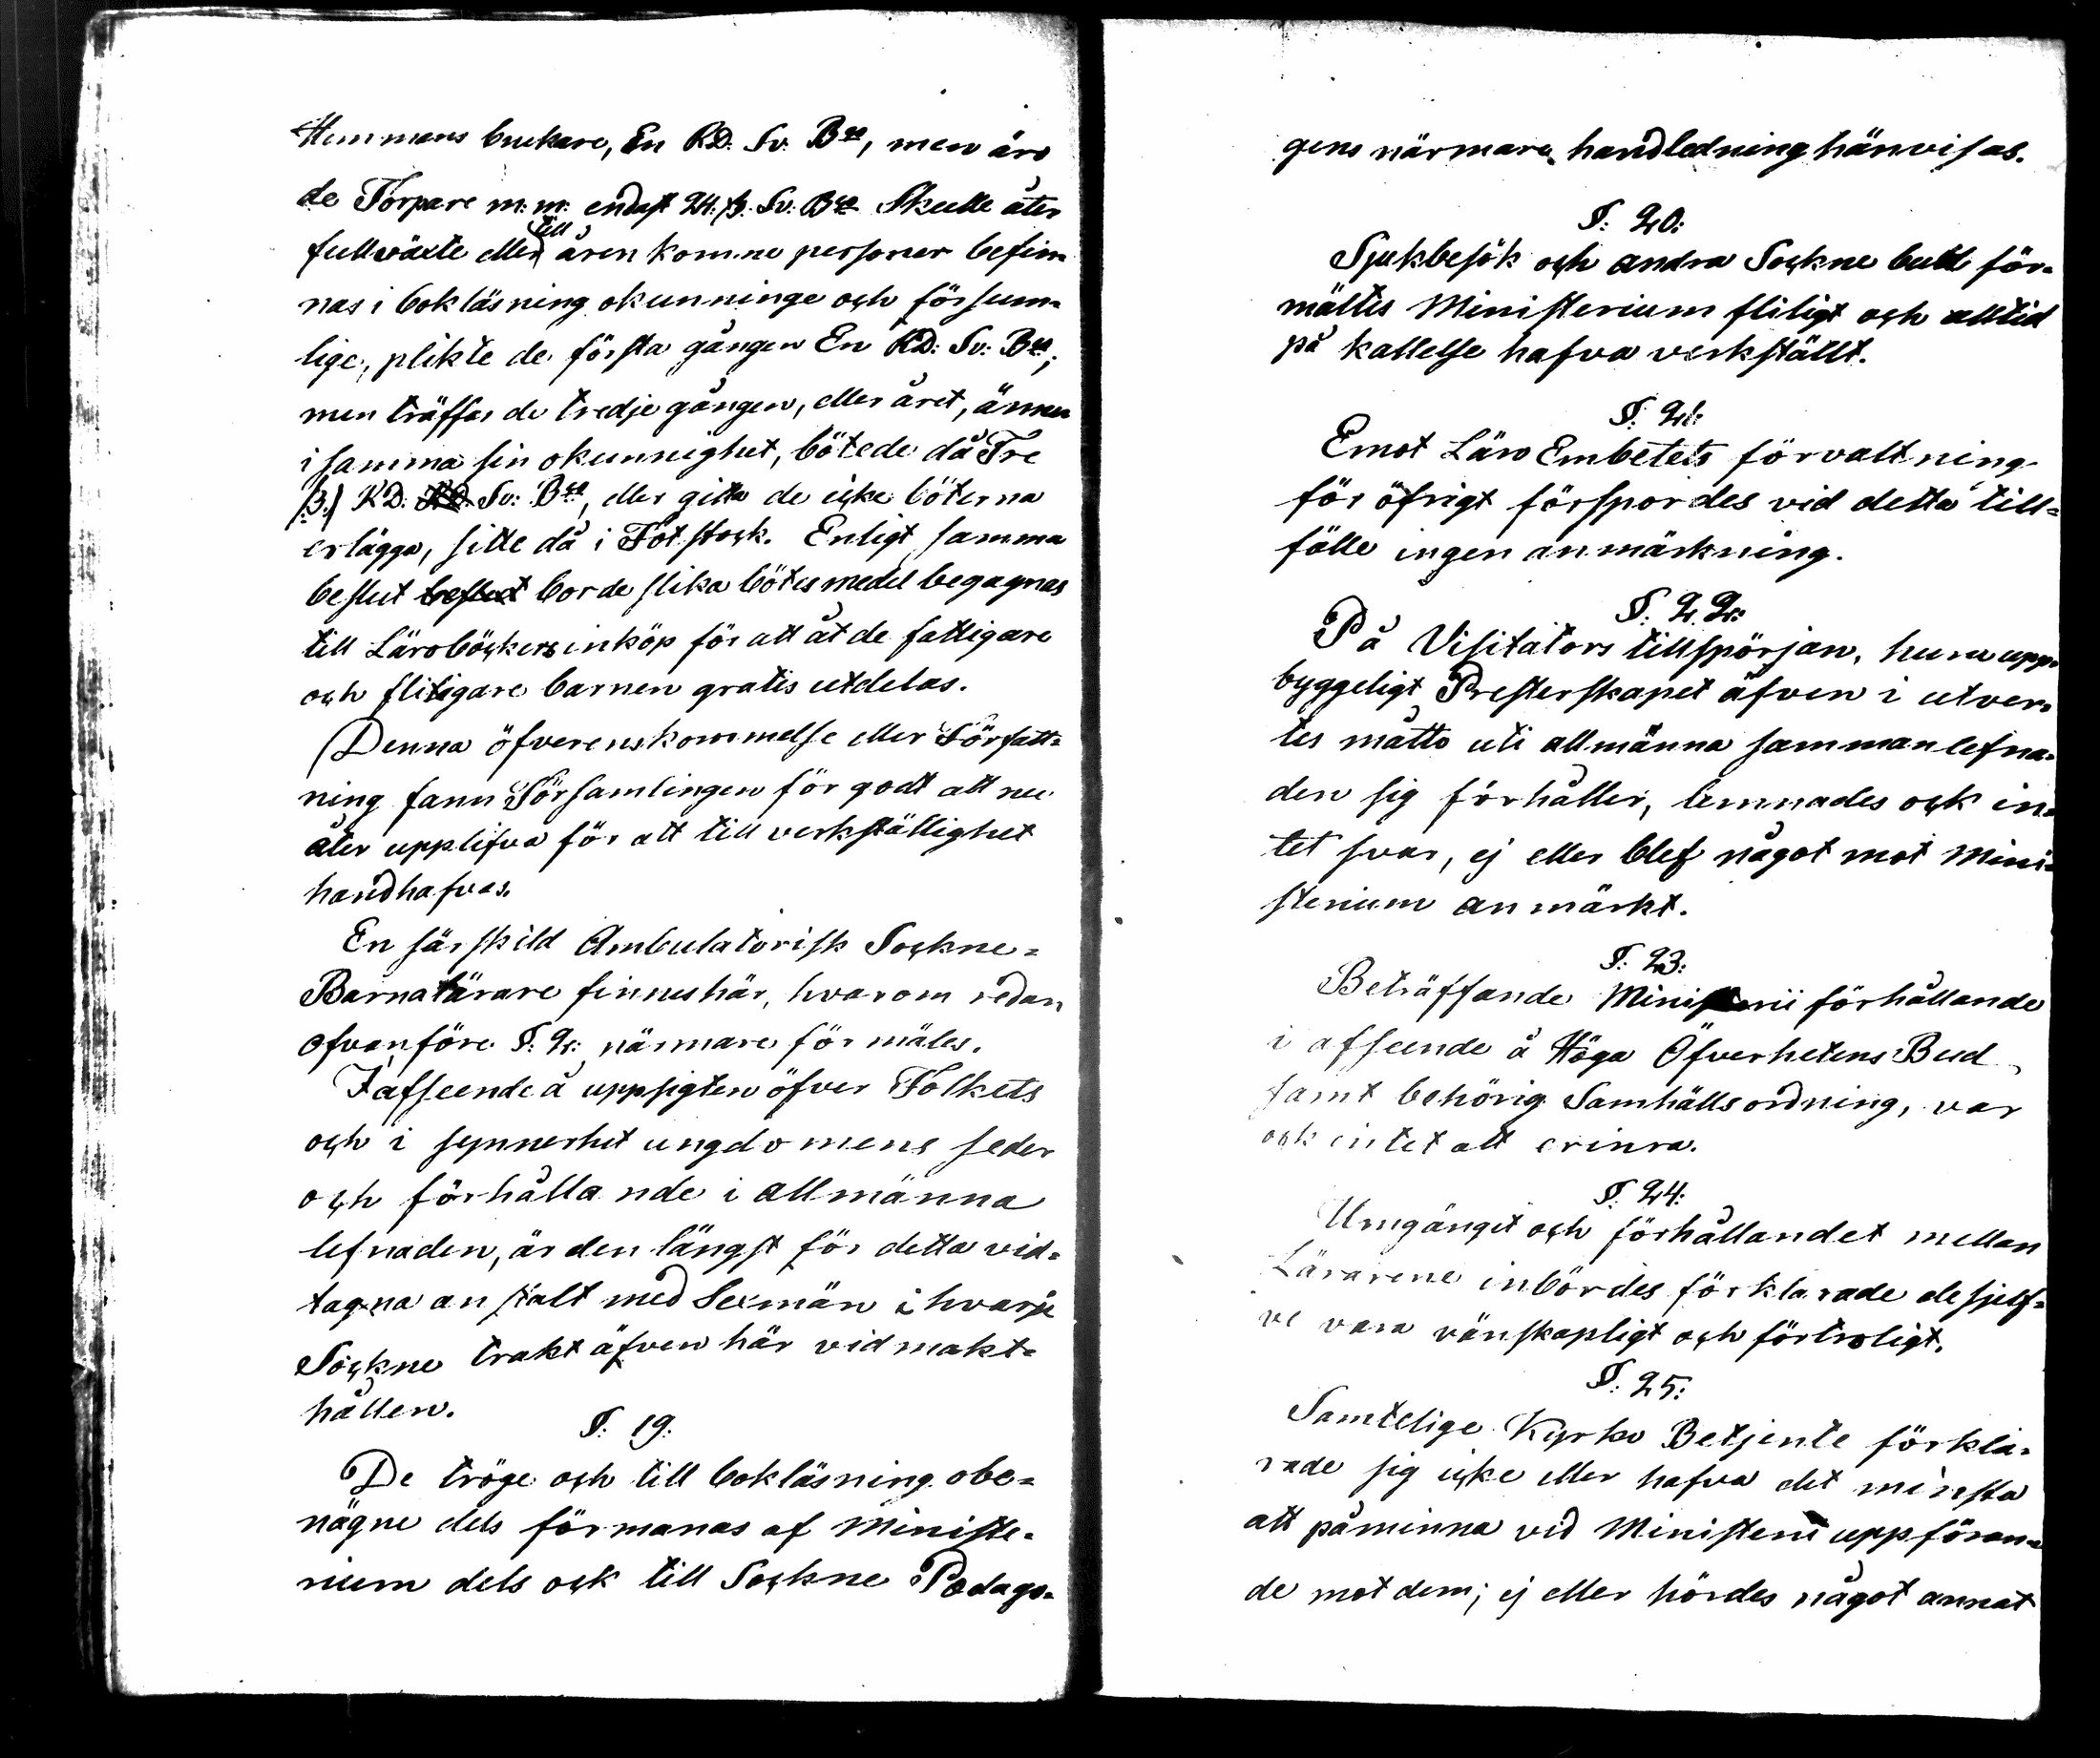 Hemmans brukare, En RD. Sv. B<sup>co</sup>, men äro
de Torpare m: m: endast 24. ß. Sv: B<sup>co</sup> Skulle åter
fullväxte eller till åren komne personer befin-
nas i bokläsning okunninge och försum-
lige, plikte de första gången En RD: Sv: B<sup>co</sup>;
men träffas de tredje gången, eller året, ännu
i samma sin okunnighet, bötede då Tre
/3./ RD: Sv: B<sup>co</sup>, eller gitta de icke böterna
erlägga, sitte då i Fotstock. Enligt samma
beslut beslut borde slika bötesmedel begagnas
till Läroböckers inköp för att åt de fattigare
och flitigare barnen gratis utdelas.
Denna öfverenskommelse eller Författ-
ning fann Församlingen för godt att nu
åter upplifva för att till verkställighet
handhafvas.
En särskild Ambulatorisk Sockne-
Barnalärare finnes här, hvarom redan
ofvanföre §: 2: närmare förmäles.
I afseende å uppsigten öfver Folkets
och i synnerhet ungdomens seder
och förhållande i allmänna
lefnaden, är den längst för detta vid-
tagna anstalt med Sexmän i hvarje
Sockne trakt äfven här vidmakt-
hållen.
§. 19.
De tröge och till bokläsning obe-
nägne dels förmanas af Ministe-
rium dels ock till Sockne Pædago-
gens närmare handledning hänvisas.
§: 20:
Sjukbesök och andra Sockne bud för-
mältes Ministerium flitigt och alltid
på kallelse hafva verkställt.
§: 21:
Emot Läro Embetets förvaltning
för öfrigt förspordes vid detta till-
fälle ingen anmärkning.
§: 22:
På Visitators tillspörjan, huru upp-
byggeligt Presterskapet äfven i utver-
tes måtto uti allmänna sammanlefna-
den sig förhåller, lemnades ock in-
tet svar, ej eller blef något mot Mini-
sterium anmärkt.
§: 23:
Beträffande Ministerii förhållande
i afseende å Höga Öfverhetens Bud
samt behörig Samhällsordning, var
ock intet att erinra.
§: 24:
Umgänget och förhållandet mellan
Lärarene inbördes förklarade de sjelf-
ve vara vänskapligt och förtroligt.
§: 25:
Samtelige Kyrko Betjente förkla-
rade sig icke eller hafva det minsta
att påminna vid Ministerii uppföran-
de mot dem; ej eller hördes något annat